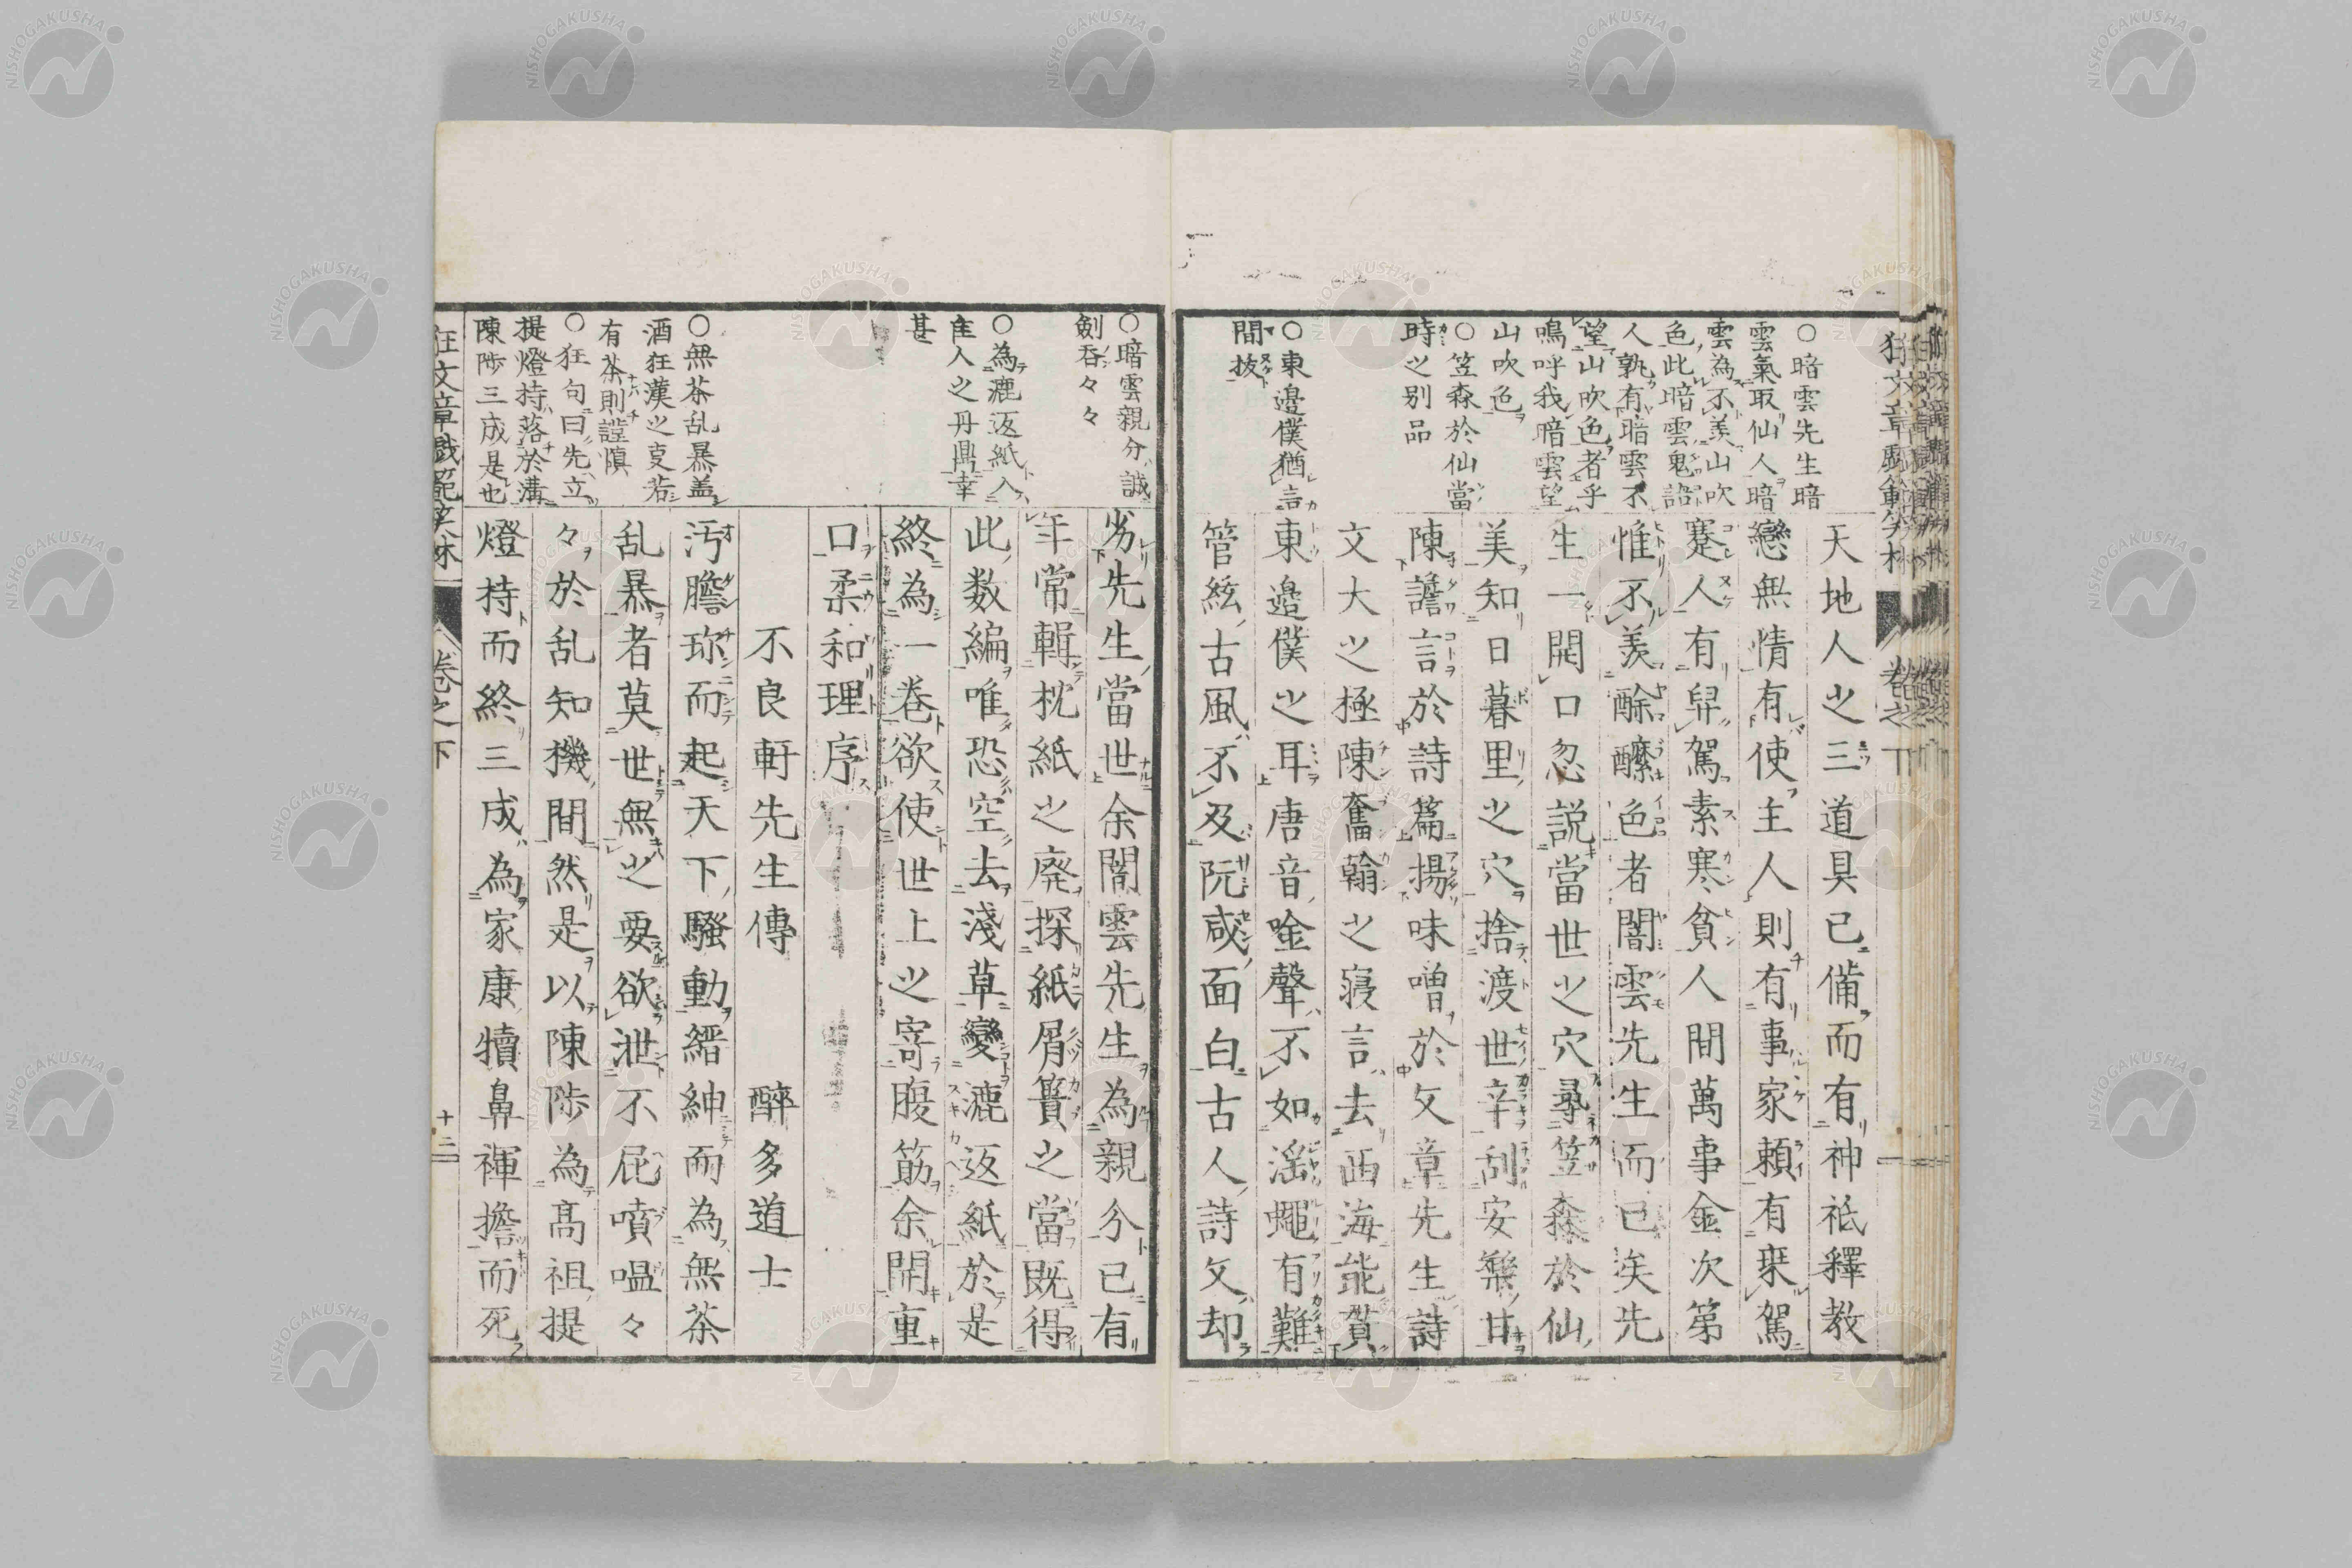 ○暗雲先生暗
雲氣取仙人暗
雲為不羨山吹
色此暗雲鬼諂
人孰有暗雲不
望山吹色者乎
鳴呼我暗雲望
山吹色
○笠森於仙當
時之別品
○東邉僕猶言
間拔
天地人之三道具已備而有神祇釋教
戀無情有使主人則有事家頼有乗駕
蹇人有舁駕素寒貧人間萬事金次第
惟不羨酴醿色者闇雲先生而已矣先
生一開口忽説當世之穴尋笠森於仙
美知日暮里之穴捨渡世辛刮安樂甘
陳譫言於詩篇揚味噌於文章先生詩
文大之極陳奮翰之寢言去西海能賀
東邉僕之耳唐音唫聲不如滛蠅有難
管絃古風不及阮咸面白古人詩文却
狂文章戯範笑林 卷之下
○暗雲親分誠
劍呑々々
○為漉返紙入
隹人之丹鼎幸
甚
○無茶乱暴盖
酒狂漢之叓若
有茶則謹慎
○狂句曰先立
提燈持落於溝
陳陟三成是也
劣先生當世余闇雲先生為親分已有
年常輯枕紙之廃探紙屑簣之當既得
此数編唯恐空去淺草變漉返紙於是
終為一卷欲使世上之寄腹筋余開重
口柔和理序
不良軒先生傳
醉多道士
汚膽珎而起天下騷動縉紳而為無茶
乱暴者莫世無之要欲泄不屁噴嗢々
々於乱知機間然是以陳陟為髙祖提
燈持而終三成為家康犢鼻褌擔而死
狂文章戯範笑林 卷之下 十二